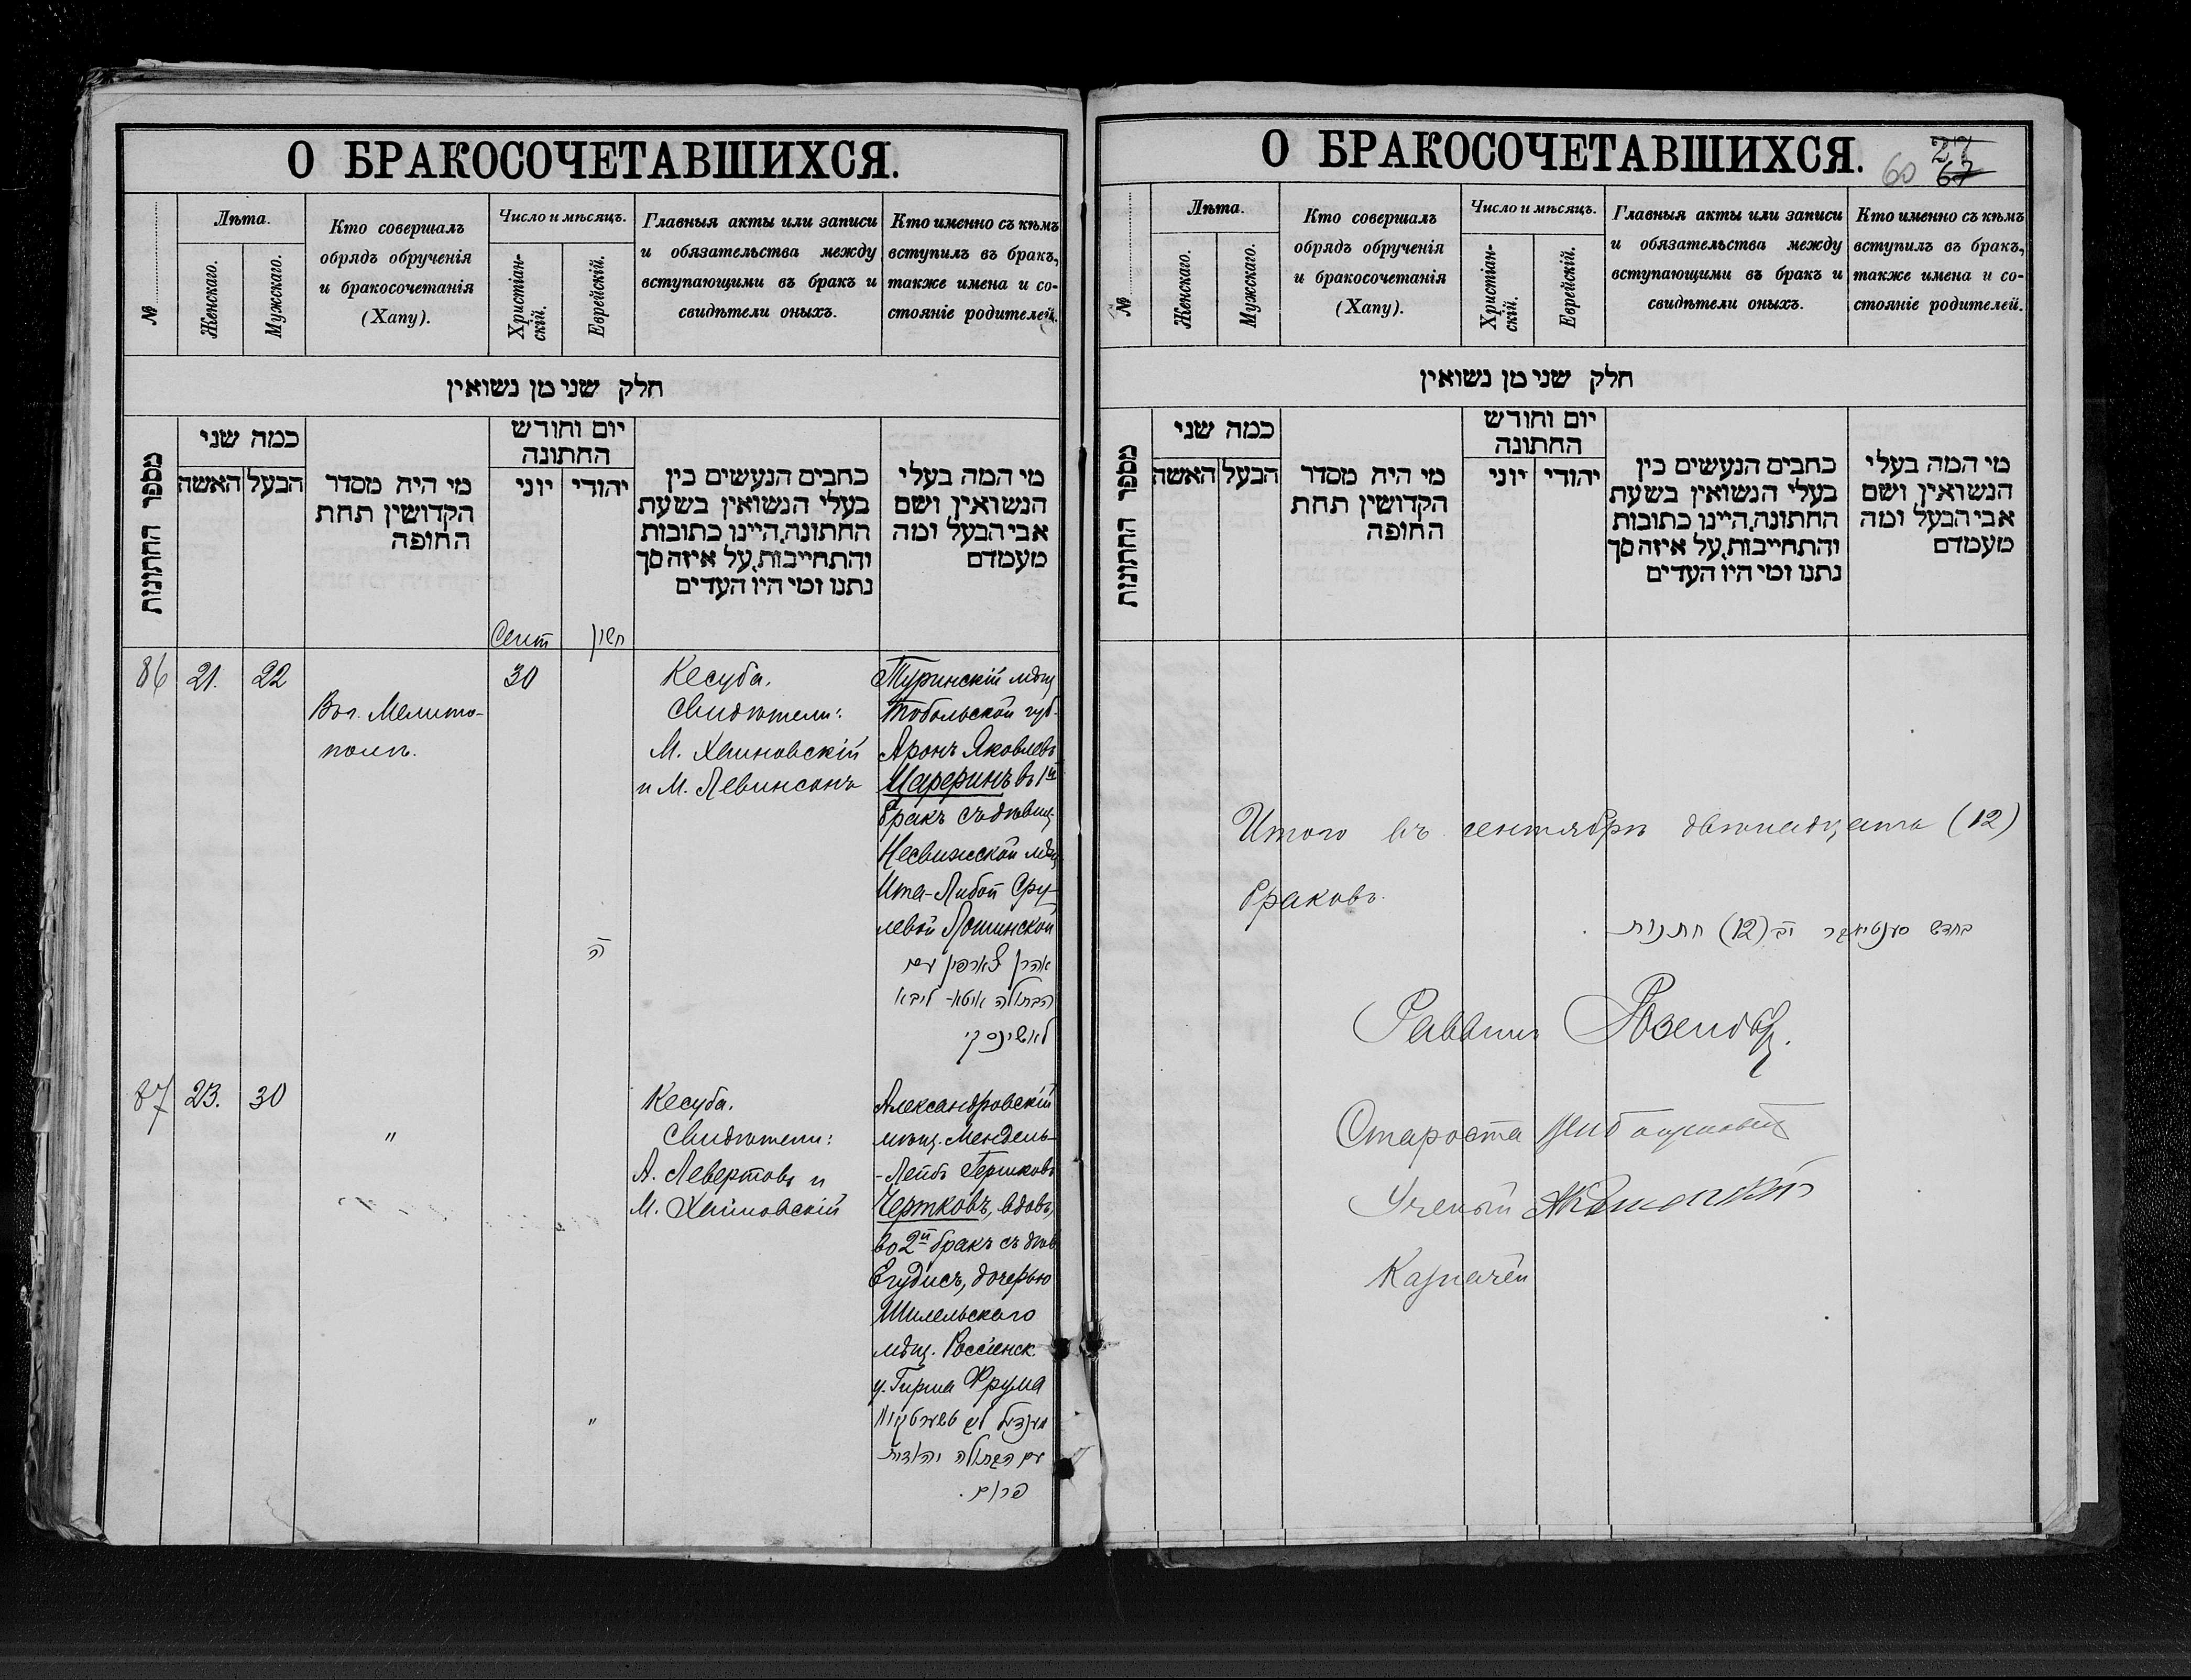 О БРАКОСОЧЕТАВШИХСЯ.
№
Лѣта.
Женскаго.
Мужскаго.
Кто совершалъ
обрядъ обрученія
и бракосочетанія
(Хапу).
Число и мѣсяцъ.
Христіан-
скій.
Еврейскій.
Главныя акты или записи
и обязательства между
вступающими въ бракъ и
свидѣтели оныхъ.
Кто именно съ кѣмъ
вступилъ въ бракъ,
также имена и со-
стояніе родителей.
חלק שני מן נשואין
מספר החתונות
כמה שני
האשה
הבעל
מי היה מסדר
הקדושין תחת
החופה
יום וחודש
החתונה
יוני
יהודי
כתבים הנעשים בין
בעלי הנשואין בשעת
החתונה, היינו כתובות
והתחייבות, על איזה סך
נתנו ומי היו העדים
מי המה בעלי
הנשואין ושם
אבי הבעל ומה
מעמדם
Сент
חשון
86
21.
22
Въ г. Мелито-
полѣ.
30
ה
Кесуба.
Свидѣтели:
М. Хаиновскій
и М. Левинсонъ
Туринскій мѣщ
Тобольской губ.
Аронъ Яковлевъ
Царфинъ въ 1й
бракъ съ дѣвиц.
Несвижской мѣщ
Ита-Либой Сру-
левой Лошинской
אהרן צארפין עם
הבתולה איטא-ליבא
לאשינסקי
87
23.
30
"
"
Кесуба.
Свидѣтели:
А. Левертовъ и
М. Хаиновскій
Александровскій
мѣщ. Мендель-
-Лейбъ Гершковъ
Чертковъ, вдовъ,
во 2й бракъ съ дѣв
Егудисъ, дочерью
Шилельскаго
мѣщ. Россіенск.
у. Гирша Фрума
מענדיל ליב טשערטקוב
עם הבתולה יהודית
פרום.
О БРАКОСОЧЕТАВШИХСЯ.
27
60
67
№
Лѣта.
Женскаго.
Мужскаго.
Кто совершалъ
обрядъ обрученія
и бракосочетанія
(Хапу).
Число и мѣсяцъ.
Христіан-
скій.
Еврейскій.
Главныя акты или записи
и обязательства между
вступающими въ бракъ и
свидѣтели оныхъ.
Кто именно съ кѣмъ
вступилъ въ бракъ,
также имена и со-
стояніе родителей.
חלק שני מן נשואין
מספר החתונות
כמה שני
האשה
הבעל
מי היה מסדר
הקדושין תחת
החופה
יום וחודש
החתונה
יוני
יהודי
כתבים הנעשים בין
בעלי הנשואין בשעת
החתונה, היינו כתובות
והתחייבות, על איזה סך
נתנו ומי היו העדים
מי המה בעלי
הנשואין ושם
אבי הבעל ומה
מעמדם
Итого въ сентябрѣ двѣнадцать (12)
браковъ.
בחדש סענטיאבר יב (12) חתנות
Раввинъ
Староста
Ученый
Казначей